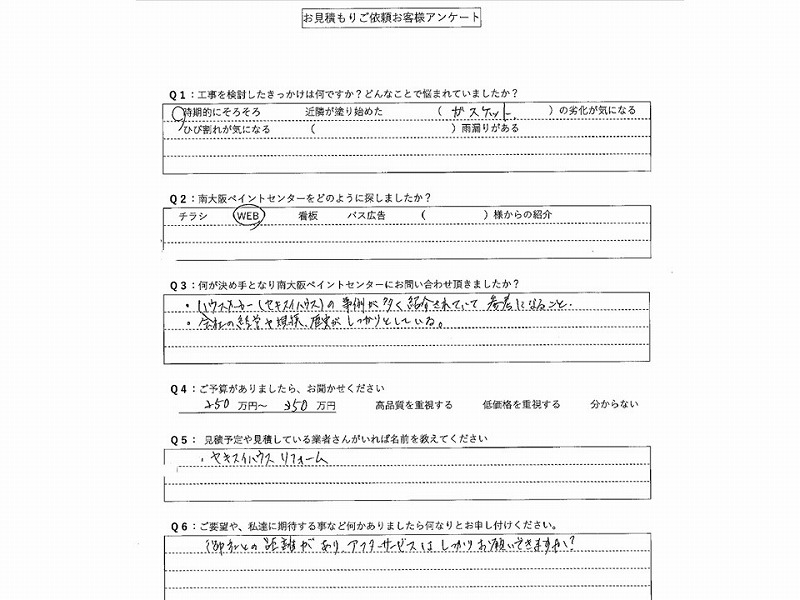 お見積もりご依頼お客様アンケート
Q1：工事を検討したきっかけは何ですか？どんなことで悩まれていましたか？
時期的にそろそろ 近隣が塗り始めた （ ガスケット ）の劣化が気になる
ひび割れが気になる （ ）雨漏りがある
Q2：南大阪ペイントセンターをどのように探しましたか？
チラシ WEB 看板 バス広告 （ ）様からの紹介
Q3：何が決め手となり南大阪ペイントセンターにお問い合わせ頂きましたか？
・ハウスメーカー（セキスイハウス）の事例が多く紹介されていて参考になること.
・会社の経営や規模、歴史がしっかりとしている。
Q4：ご予算がありましたら、お聞かせください
250 万円～ 350 万円 高品質を重視する 低価格を重視する 分からない
Q5： 見積予定や見積している業者さんがいれば名前を教えてください
・セキスイハウス リフォーム
Q6：ご要望や、私達に期待する事など何かありましたら何なりとお申し付けください。
御社との距離があり、アフターサービスはしっかりお願いできますか？